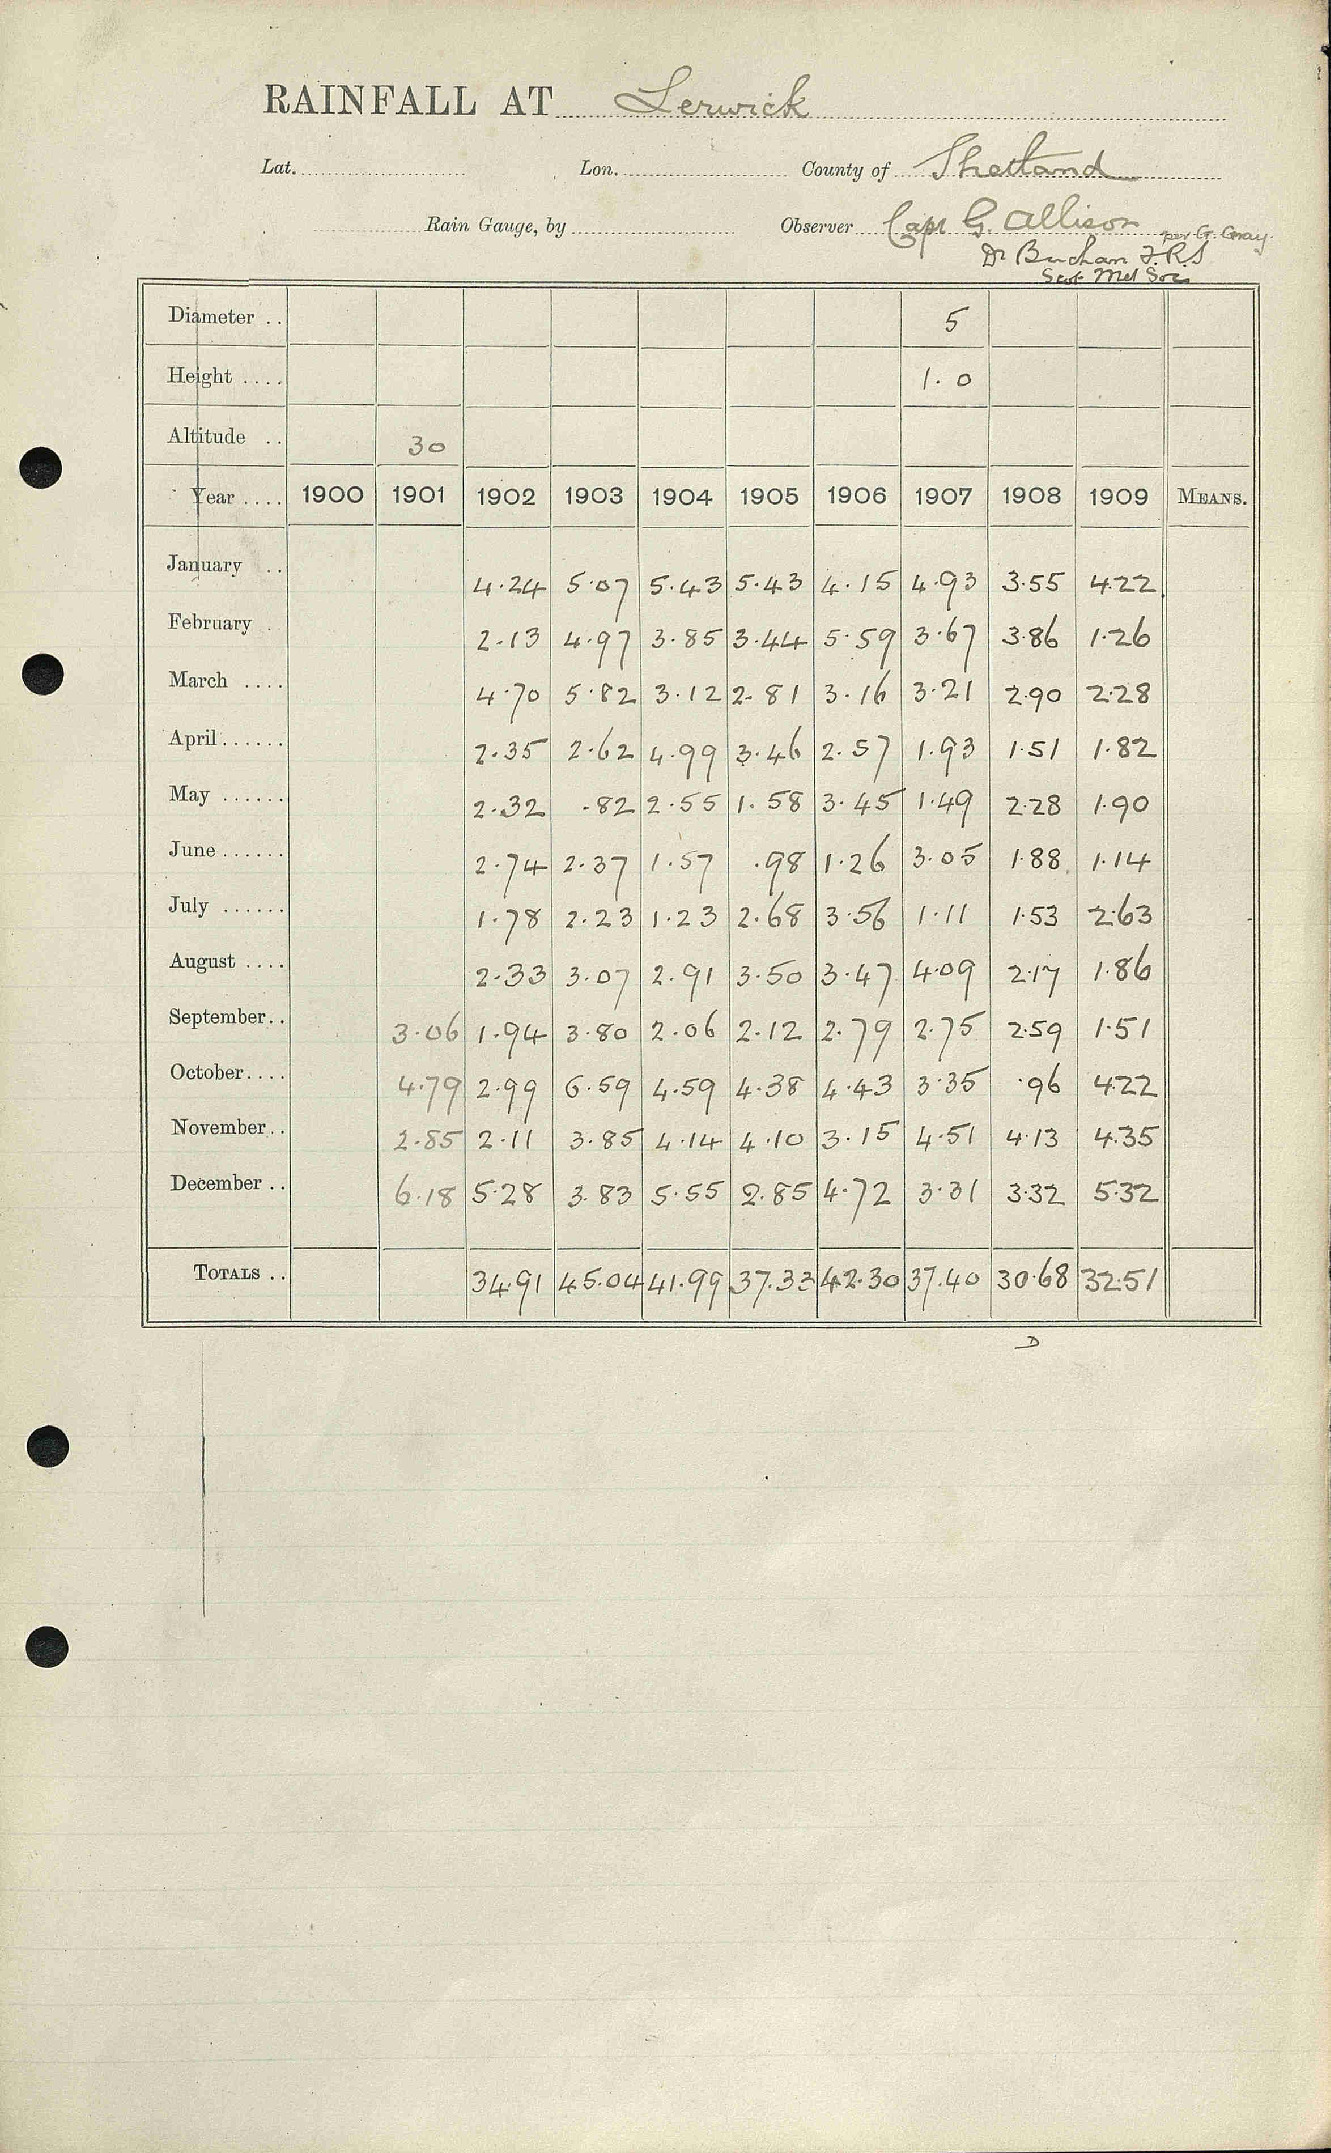 RAINFALL AT Lerwick
Lat. Lon. County of Shetland
Rain Gauge, by Observer Capt G. Allison per G. Gray
Dr Buchan F.R.S
Scot Met Soc
Diameter .. 5
Height .... 1.0
Altitude .. 30
Year .... 1900 1901 1902 1903 1904 1905 1906 1907 1908 1909 MEANS.
January .. 4.24 5.07 5.43 5.43 4.15 4.93 3.55 4.22
February . 2.13 4.97 3.85 3.44 5.59 3.67 3.86 1.26
March .... 4.70 5.82 3.12 2.81 3.16 3.21 2.90 2.28
April ...... 2.35 2.62 4.99 3.46 2.57 1.93 1.51 1.82
May ...... 2.32 .82 2.55 1.58 3.45 1.49 2.28 1.90
June ...... 2.74 2.37 1.57 .98 1.26 3.05 1.88 1.14
July ...... 1.78 2.23 1.23 2.68 3.56 1.11 1.53 2.63
August .... 2.33 3.07 2.91 3.50 3.47 4.09 2.17 1.86
September.. 3.06 1.94 3.80 2.06 2.12 2.79 2.75 2.59 1.51
October.... 4.79 2.99 6.59 4.59 4.38 4.43 3.35 .96 4.22
November.. 2.85 2.11 3.85 4.14 4.10 3.15 4.51 4.13 4.35
December .. 6.18 5.28 3.83 5.55 2.85 4.72 3.31 3.32 5.32
TOTALS .. 34.91 45.04 41.99 37.33 42.30 37.40 30.68 32.51
D